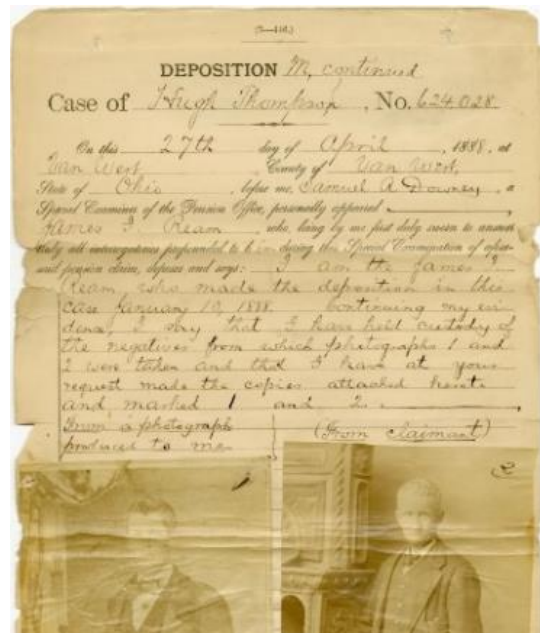 (3—446.)
DEPOSITION M, continued
Case of Hugh Thompson, No. 624,028
On this 27th day of April, 1888, at
Van Wert, County of Van Wert,
State of Ohio, before me, Samuel A Downey, a
Special Examiner of the Pension Office, personally appeared
James P. Ream, who, being by me first duly sworn to answer
truly all interrogatories propounded to him during this Special Examination of afore-
said pension claim, deposes and says: I am the James P.
Ream, who made the deposition in this
case January 10, 1888. Continuing my evi-
dence, I say that I have held custody of
the negatives from which photographs 1 and
2 were taken and that I have at your
request made the copies attached hereto
and marked 1 and 2.
From a photograph
produced to me
(From claimant)
1
2